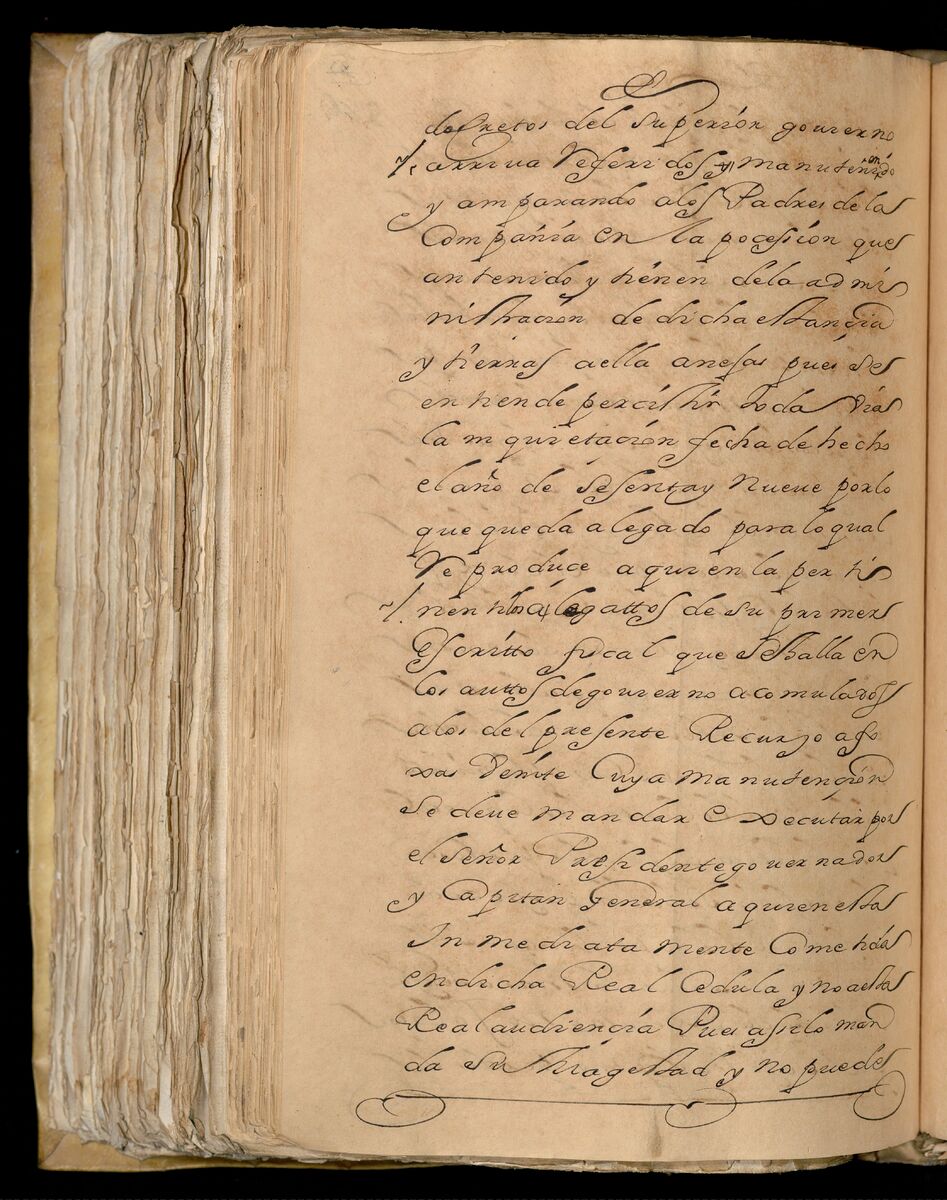 decretos del superior gouierno
arriua Referidos y manuteniendo
y amparando a los Padres de la
Compañia en la pocesion que
an tenido y tienen de la admi
nistracion de dicha estançia
y tierras a ella anejas pues se
entiende percistir toda via
la inquietacion fecha de hecho
el año de sesenta y Nueue por lo
que queda alegado para lo qual
Reproduce aqui en la perti
nentte los alegattos de su primer
Escritto fiscal que se halla en
los auttos de gouierno acomulados
a los del presente Recurso a fo
xas Veinte Cuya manutençion
se deue mandar Executar por
el señor Presidente gouernador
y Capitan General a quien esta
Inmediatamente Cometida
en dicha Real Cedula y no a esta
Real audiençia Pues assi lo man
da su Magestad y no puede